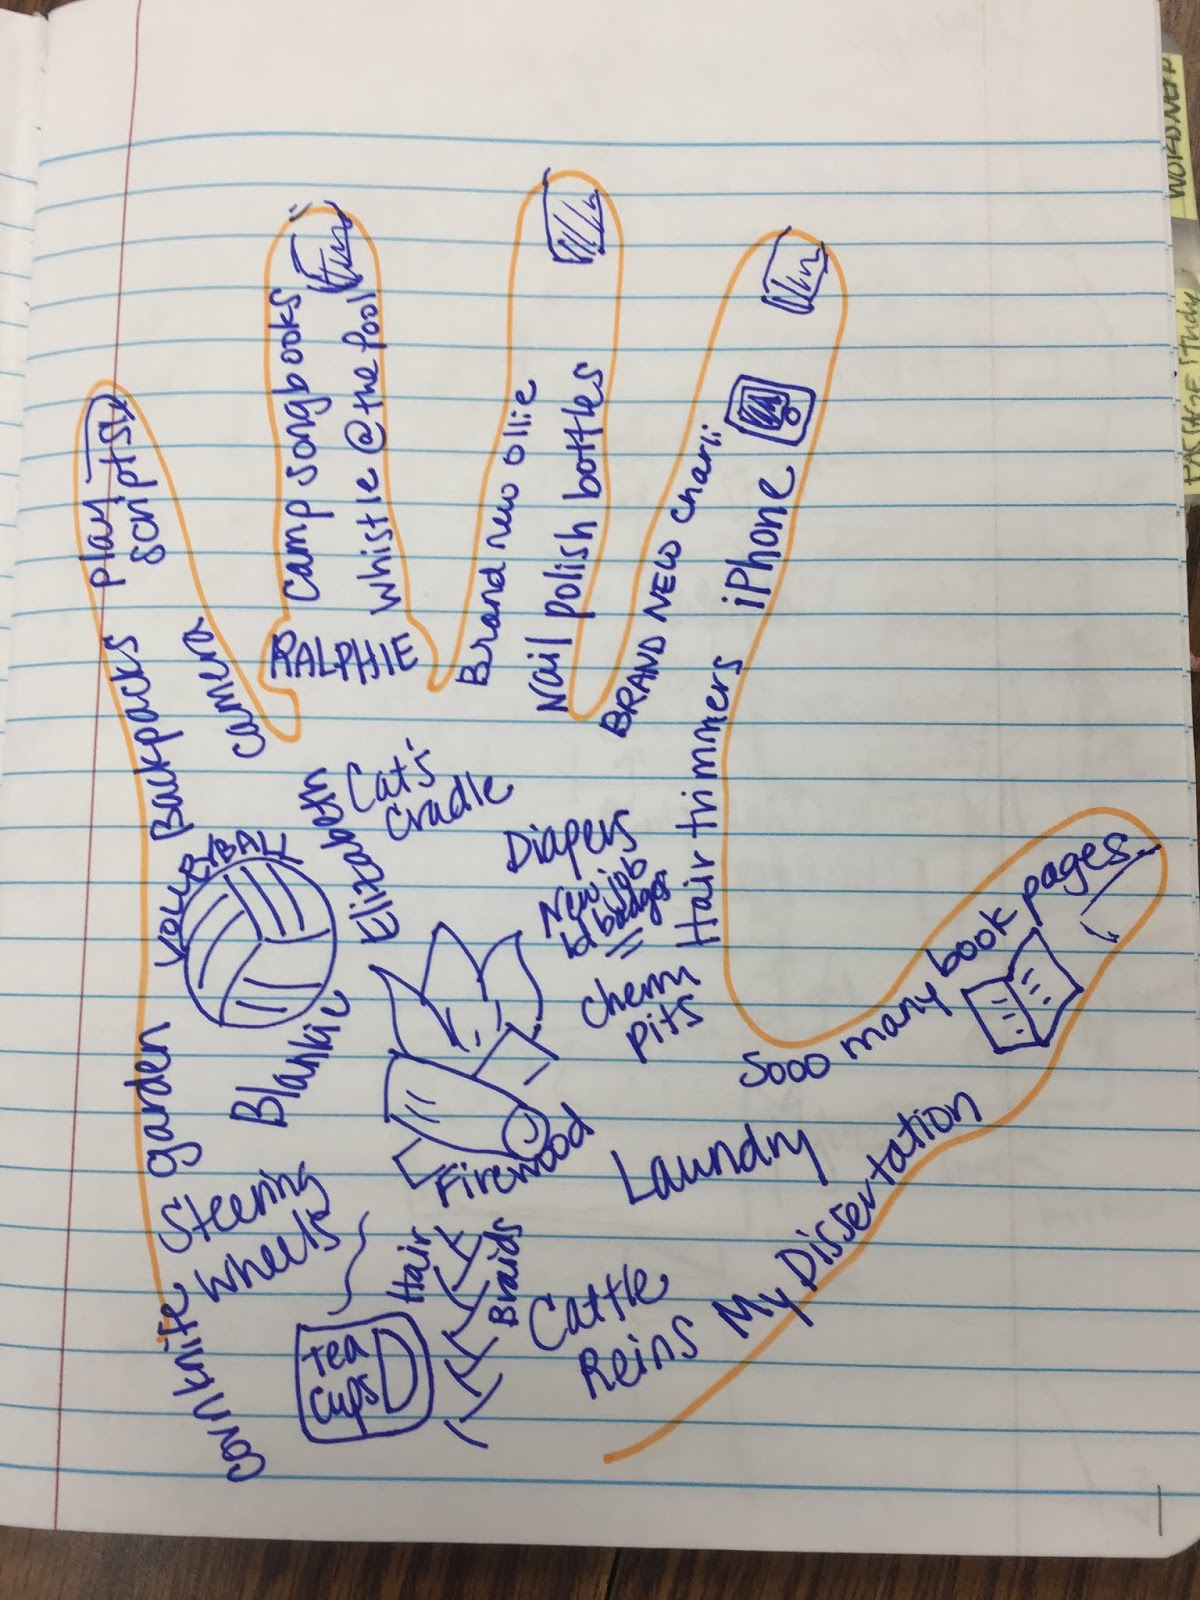 play
scripts
Camp songbooks
whistle @ the pool
RALPHIE
Brand new Ollie
Nail polish bottles
BRAND NEW Charli
iPhone
Hair trimmers
Backpacks
camera
VOLLEYBALL
Elizabeth
Cat's
Cradle
Diapers
New job
id badges
Chem
pits
Sooo many book pages
garden
Blankie
Firewood
Laundry
My Dissertation
Steering
Wheels
Hair
Braids
Cattle
Reins
Tea
Cups
knife